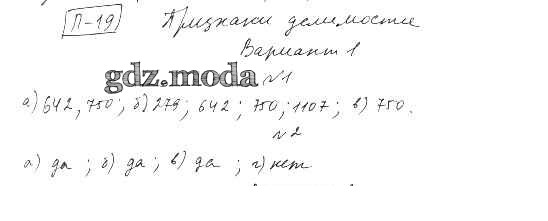 П-19 Признаки делимости
Вариант 1
gdz.moda №1
а) 642, 750; б) 279; 642; 750; 1107; в) 750.
№2
а) да; б) да; в) да; г) нет